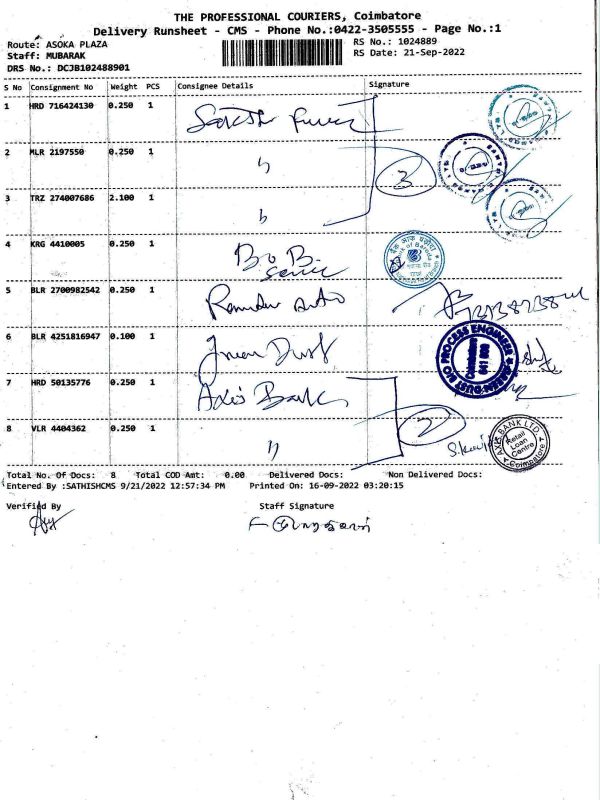 THE PROFESSIONAL COURIERS, Coimbatore
Delivery Runsheet - CMS - Phone No.:0422-3505555 - Page No.:1
Route: ASOKA PLAZA
RS No.: 1024889
Staff: MUBARAK
RS Date: 21-Sep-2022
DRS No.: DCJB102488901
S No Consignment No Weight PCS Consignee Details Signature
1 HRD 716424130 0.250 1
2 MLR 2197550 0.250 1 〃
3
3 TRZ 274007686 2.100 1 〃
4 KRG 4410005 0.250 1 BoB
5 BLR 2700982542 0.250 1
6 BLR 4251816947 0.100 1
PROCESS ENGINEER
Coimbatore
7 HRD 50135776 0.250 1 Axis Bank
2
8 VLR 4404362 0.250 1 〃
AXIS BANK LTD.
Retail
Loan
Centre
Coimbatore
Total No. Of Docs: 8 Total COD Amt: 0.00 Delivered Docs: Non Delivered Docs:
Entered By :SATHISHCMS 9/21/2022 12:57:34 PM Printed On: 16-09-2022 03:20:15
Verified By Staff Signature